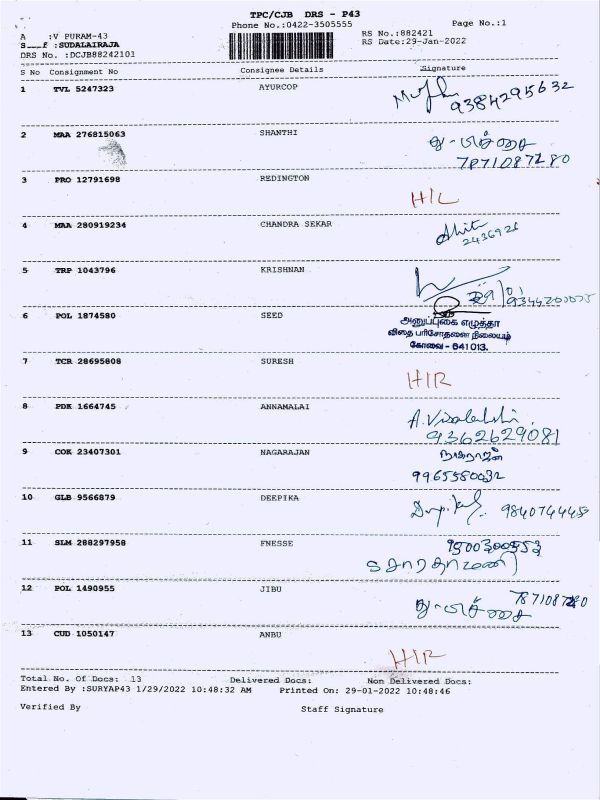 TPC/CJB DRS - P43
Phone No.:0422-3505555 Page No.:1
A :V PURAM-43 RS No.:882421
:SUDALAIRAJA RS Date:29-Jan-2022
DRS No. :DCJB88242101
S No Consignment No Consignee Details Signature
1 TVL 5247323 AYURCOP
9384295632
2 MAA 276815063 SHANTHI
7871087280
3 PRO 12791698 REDINGTON
H/L
4 MAA 280919234 CHANDRA SEKAR
2436926
5 TRP 1043796 KRISHNAN
6 POL 1874580 SEED
அனுப்புகை எழுத்தர்
விதை பரிசோதனை நிலையம்
கோவை - 641013.
7 TCR 28695808 SURESH
H/R
8 PDK 1664745 ANNAMALAI
A. Visalakshi
9362629081
9 COK 23407301 NAGARAJAN
நாகராஜன்
9965580032
10 GLB 9566879 DEEPIKA
984074445
11 SLM 288297958 FNESSE
9500300553
12 POL 1490955 JIBU
7871087280
13 CUD 1050147 ANBU
H/R
Total No. Of Docs: 13 Delivered Docs: Non Delivered Docs:
Entered By :SURYAP43 1/29/2022 10:48:32 AM Printed On: 29-01-2022 10:48:46
Verified By Staff Signature